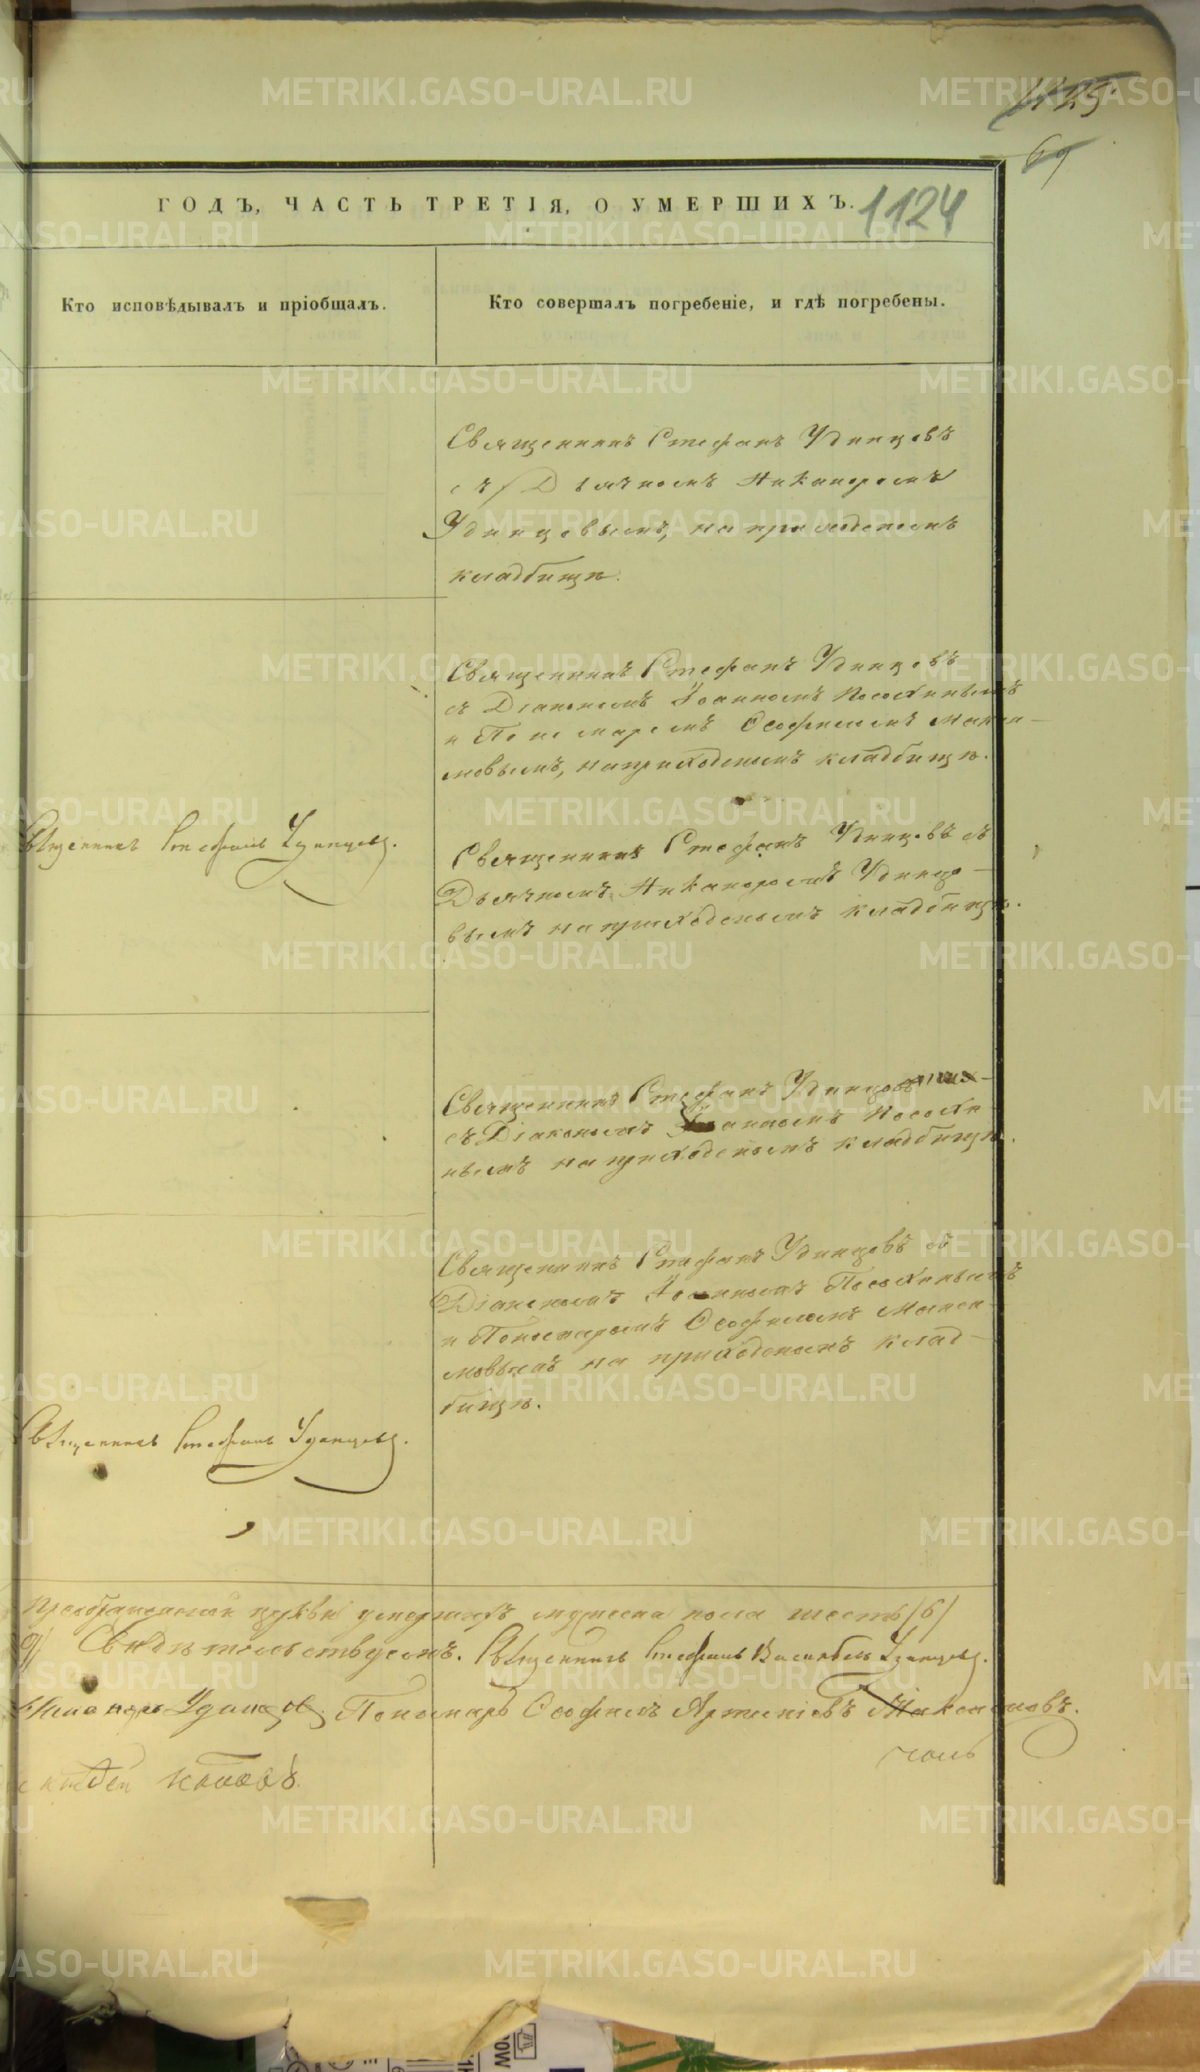 1125
69
ГОДЪ, ЧАСТЬ ТРЕТІЯ, О УМЕРШИХЪ.
1124
Кто исповѣдывалъ и пріобщалъ.
Кто совершалъ погребеніе, и гдѣ погребены.
Священникъ Стефанъ Удинцовъ
съ Дьячкомъ Никаноромъ
Удинцовымъ, на приходскомъ
кладбищѣ.
Священникъ Стефанъ Удинцовъ
съ Діакономъ Іоанномъ Посохинымъ
и Пономаремъ Ѳеофиломъ Макси-
мовымъ, на приходскомъ кладбищѣ.
Священникъ Стефанъ Удинцовъ.
Священникъ Стефанъ Удинцовъ съ
Дьячкомъ Никаноромъ Удинцо-
вымъ на приходскомъ кладбищѣ.
Священникъ Стефанъ Удинцовъ
съ Діакономъ Іоанномъ Посохи
нымъ на приходскомъ кладбищѣ.
Священникъ Стефанъ Удинцовъ съ
Діакономъ Іоанномъ Посохинымъ
и Пономаремъ Ѳеофиломъ Макси-
мовымъ на приходскомъ клад-
бищѣ.
Священникъ Стефанъ Удинцовъ.
Преображенской церкви умершихъ мужеска пола шесть (6)
9) Свидѣтельствуемъ. Священникъ Стефанъ Васильевъ Удинцовъ.
Никаноръ Удинцовъ. Пономарь Ѳеофилъ Артеміевъ Максимовъ.
METRIKI.GASO-URAL.RU